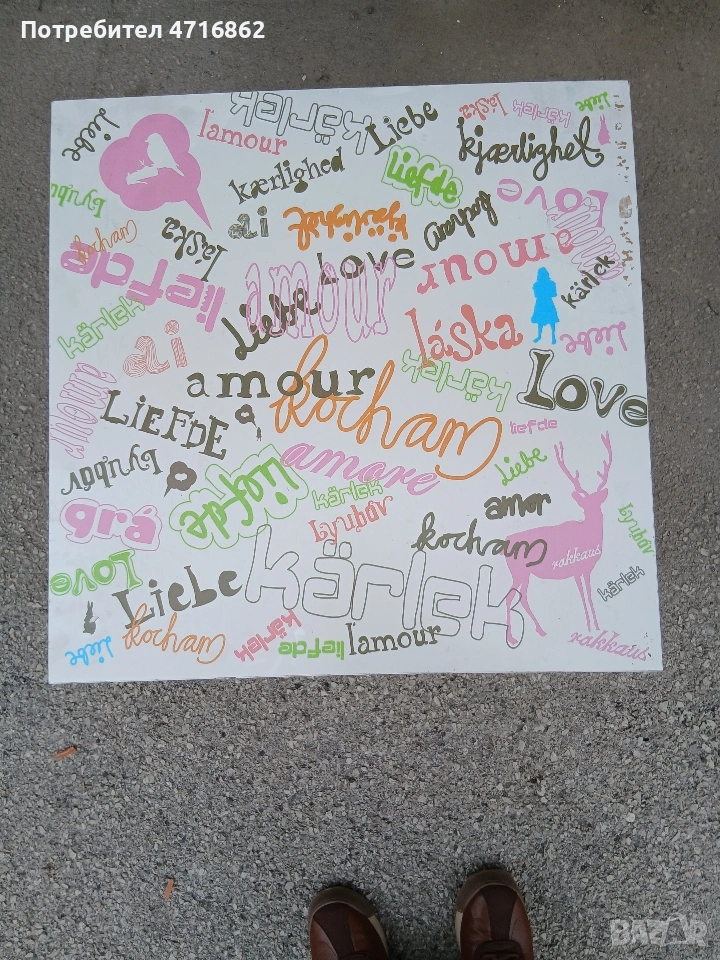 Потребител 4716862
kärlek
Liebe
láska
kärlek
Liebe
Liebe
l'amour
kærlighed
kjærlighet
liefde
Love
Lyubov
láska
ai
kjærlighet
kocham
amour
kocham
liefde
amour
Love
amour
kärlek
kärlek
ai
Liebe
láska
Liebe
amour
amour
kärlek
kärlek
Love
LiEFDE
kocham
liefde
Lyubov
amore
Liebe
grá
liefde
kärlek
amor
Lyubov
Lyubov
kocham
rakkaus
Love
Liebe
kärlek
kärlek
Liebe
kocham
kärlek
liefde
l'amour
rakkaus
BAZAR